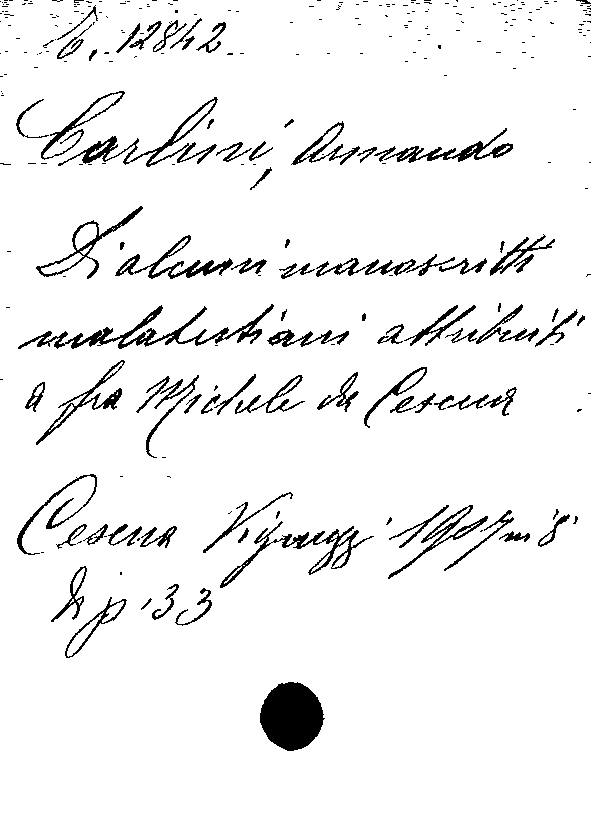 12842
Carlini, Armando
Di alcuni manoscritti
malatestiani attribuiti
a fra Michele da Cesena
Cesena Vignuzzi 1907 in 8°
di p. 33